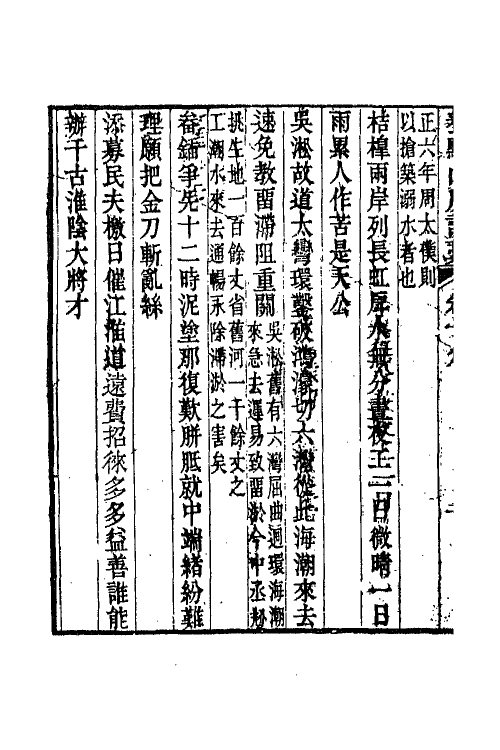 正六年周太僕則
以搶築溺水者也
桔橰兩岸列長虹戽水無分晝夜工二日微晴一日
雨累人作苦是天公
吳淞故道太彎環鑿破鴻濛切六灣從此海潮來去
速免教畱滯阻重關吳淞舊有六灣屈曲迴環海潮
來急去遲易致畱淤今中丞
挑生地一百餘丈省舊河一千餘丈之
工潮水來去通暢永除滯淤之害矣
畚鍤爭先十二時泥塗那復歎胼胝就中端緒紛難
理願把金刀斬亂絲
添募民夫檄日催江陰道遠費招徠多多益善誰能
辦千古淮陰大將才